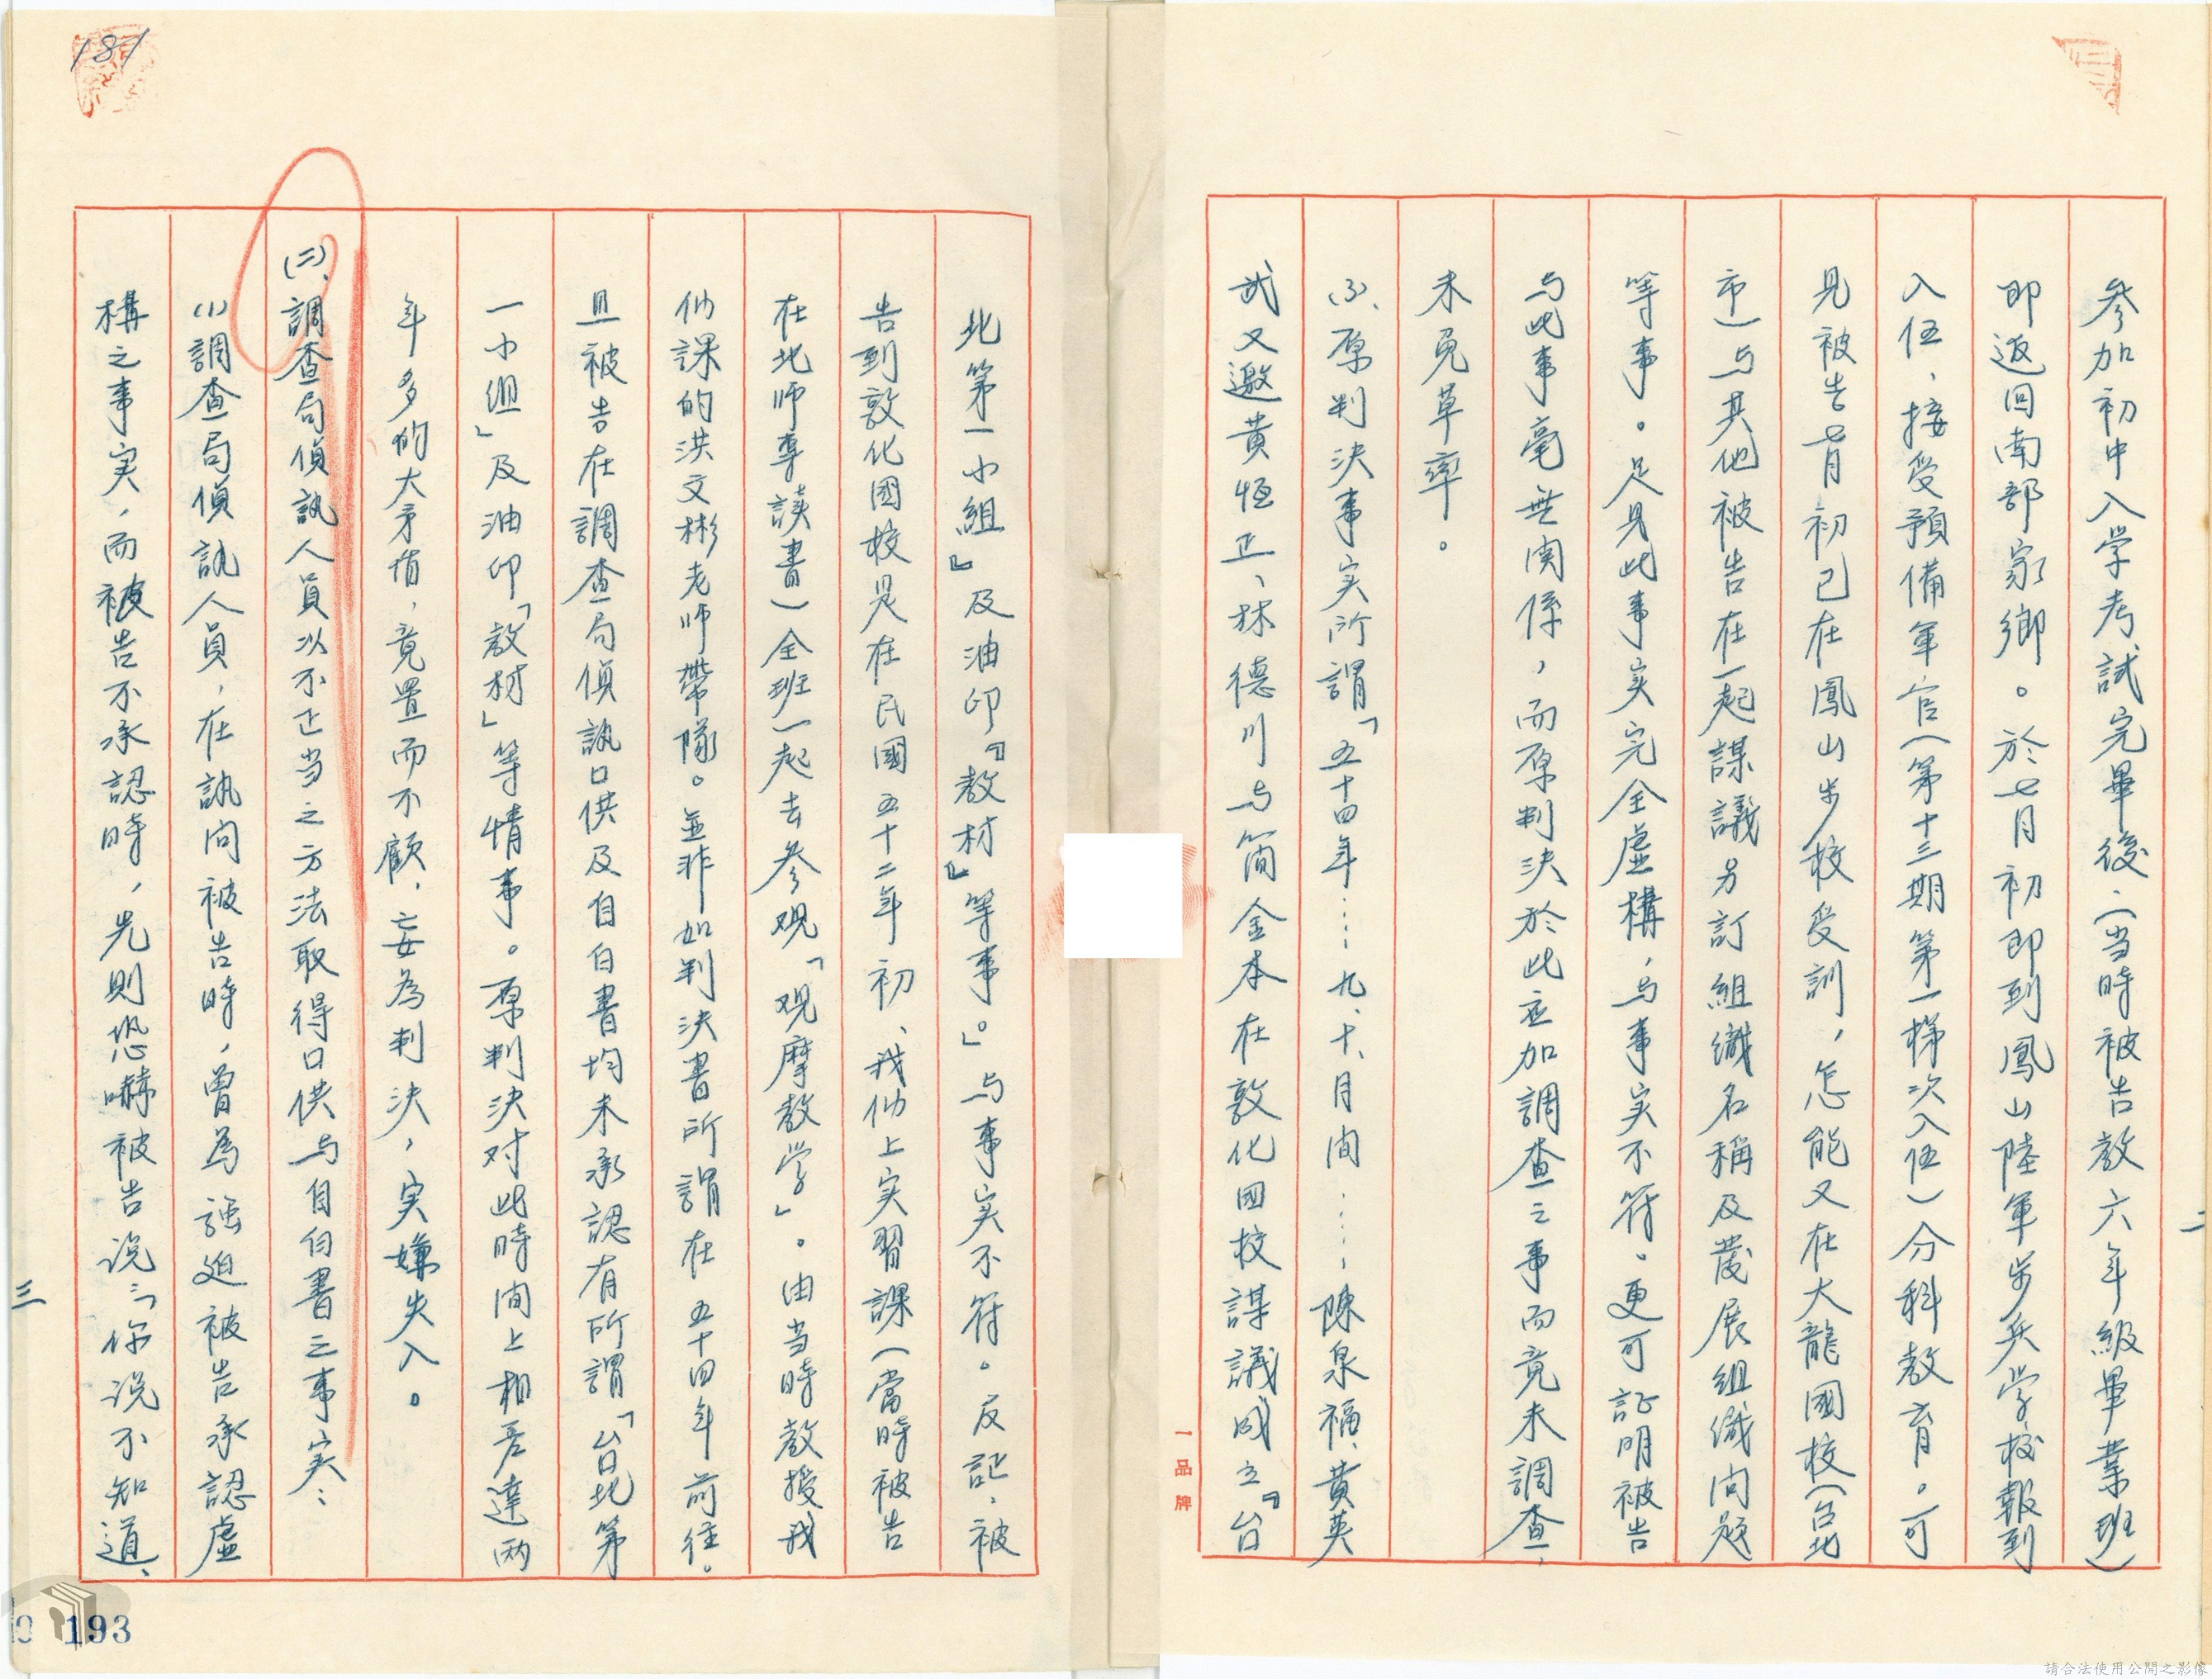 參加初中入学考試完畢後，(当時被告教六年級畢業班)
即返回南部家鄉。於七月初即到鳳山陸軍步兵学校報到
入伍，接受預備軍官(第十三期第一梯次入伍)分科教育。可
見被告七月初已在鳳山步校受訓，怎能又在大龍國校(台北
市)与其他被告在一起謀議另訂組織名稱及發展組織问题
等事。足見此事実完全虛構，与事実不符。更可証明被告
与此事毫無関係，而原判決於此应加調查之事而竟未調查，
未免草率。
原判決事実所謂「五十四年……九、十、月间……陳泉福、黃英
武又邀黃恆正、林德川与简金本在敦化国校謀議成立『台
北第一小組』及油印『教材』等事。」与事実不符。反証，被
告到敦化國校是在民國五十二年初、我们上実習課(當時被告
在北师專読書)全班一起去參观「观摩教学」。由当時教授我
们課的洪文彬老师帶隊。並非如判決書所謂在五十四年前往。
且被告在調查局偵訊口供及自白書均未承認有所謂「台北第
一小組」及油印「教材」等情事。原判決对此時间上相差達兩
年多的大矛盾，竟置而不顧，妄為判決，実嫌失入。
(二)、調查局偵訊人員以不正当之方法取得口供与自白書之事実：
(1)調查局偵訊人員，在訊问被告時，曾為強迫被告承認虛
構之事実，而被告不承認時，先則恐嚇被告说：「你说不知道、
一品牌
二
三
181
193
請合法使用公開之影像